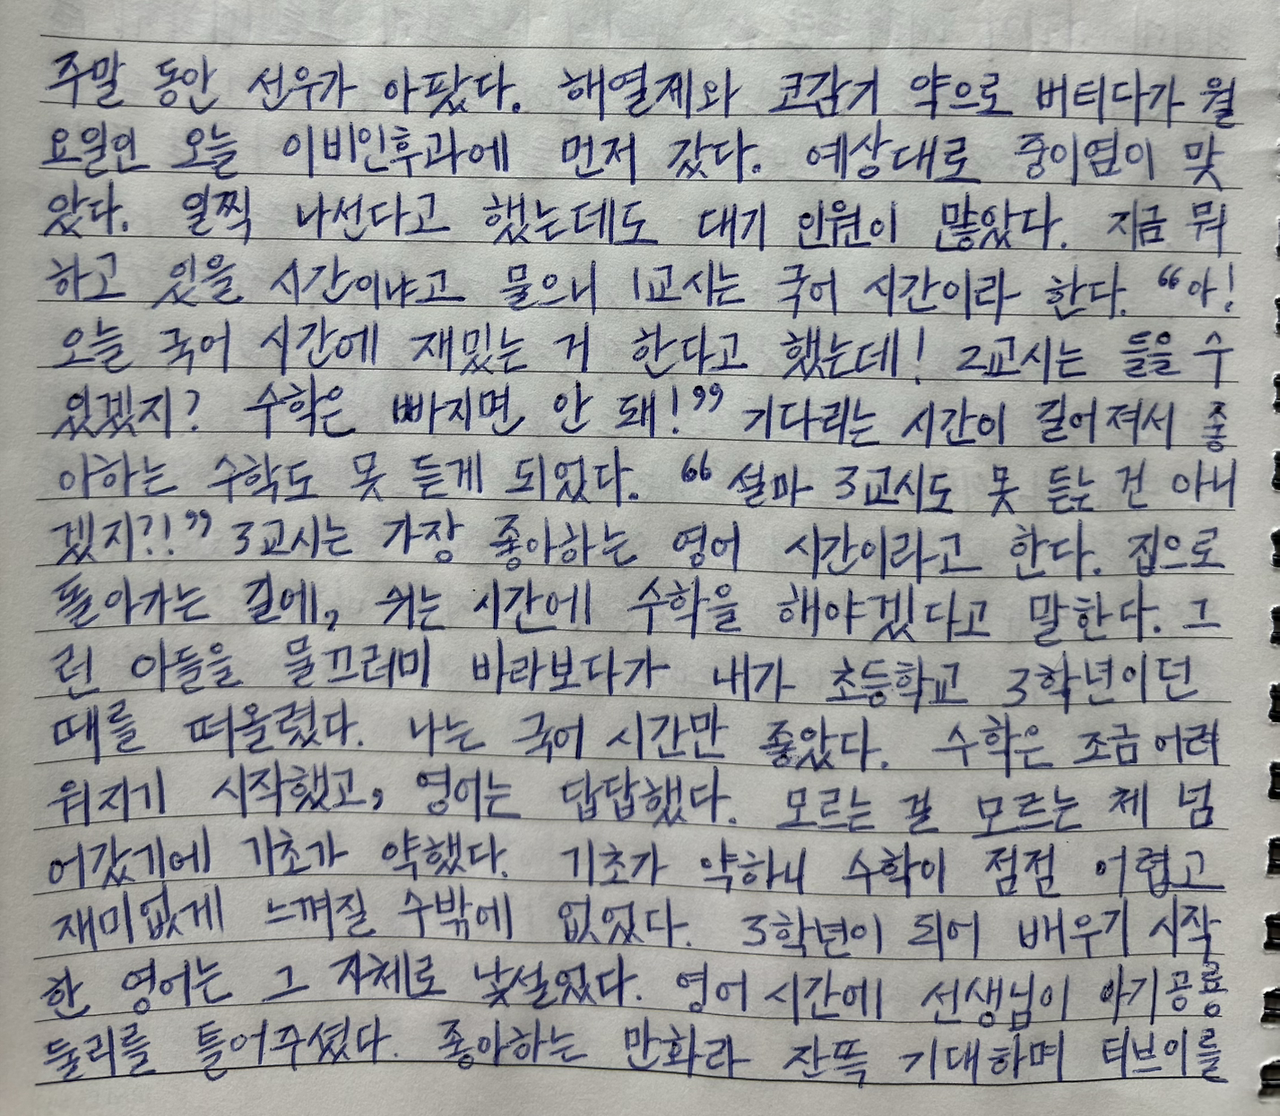 주말 동안 선우가 아팠다. 해열제와 코감기 약으로 버티다가 월
요일인 오늘 이비인후과에 먼저 갔다. 예상대로 중이염이 맞
았다. 일찍 나선다고 했는데도 대기 인원이 많았다. 지금 뭐
하고 있을 시간이냐고 물으니 1교시는 국어 시간이라 한다. “아!
오늘 국어 시간에 재밌는 거 한다고 했는데! 2교시는 들을 수
있겠지? 수학은 빠지면 안 돼!” 기다리는 시간이 길어져서 좋
아하는 수학도 못 듣게 되었다. “설마 3교시도 못 듣는 건 아니
겠지?!” 3교시는 가장 좋아하는 영어 시간이라고 한다. 집으로
돌아가는 길에, 쉬는 시간에 수학을 해야겠다고 말한다. 그
런 아들을 물끄러미 바라보다가 내가 초등학교 3학년이던
때를 떠올렸다. 나는 국어 시간만 좋았다. 수학은 조금 어려
워지기 시작했고, 영어는 답답했다. 모르는 걸 모르는 체 넘
어갔기에 기초가 약했다. 기초가 약하니 수학이 점점 어렵고
재미없게 느껴질 수밖에 없었다. 3학년이 되어 배우기 시작
한 영어는 그 자체로 낯설었다. 영어 시간에 선생님이 아기공룡
둘리를 틀어주셨다. 좋아하는 만화라 잔뜩 기대하며 티브이를